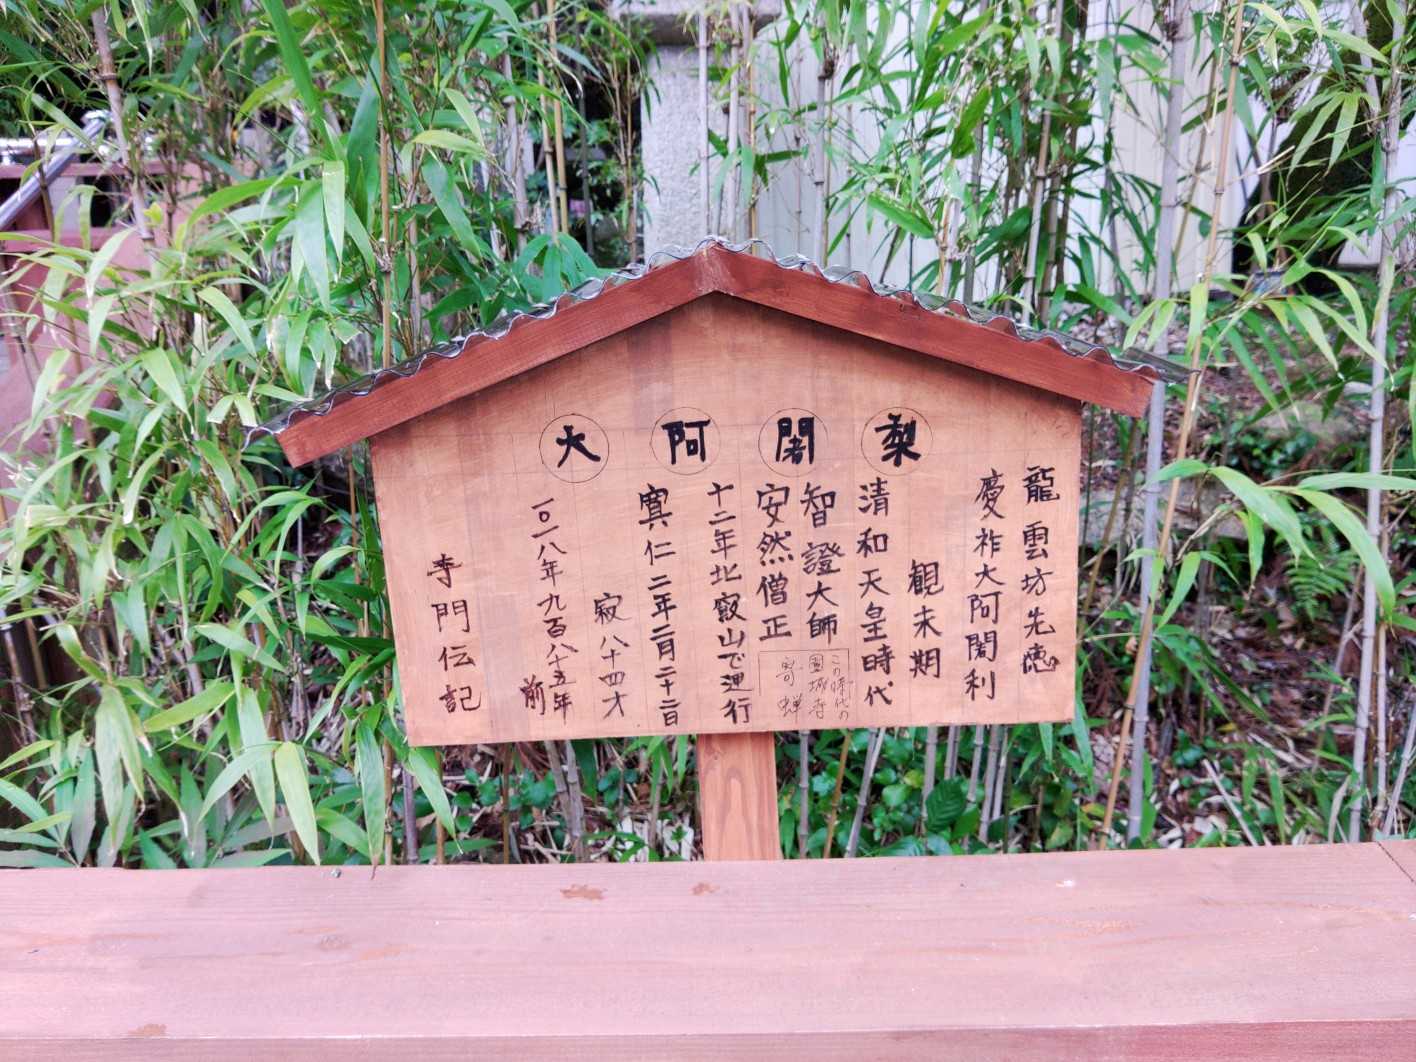 大阿闍梨
龍雲坊先徳
慶祚大阿闍利
観未期
清和天皇時代
智證大師
安然僧正
この時代の
園城寺
十二年北叡山で行
寛仁二年二月二十二日
寂八十四才
一〇一八年九百八十五年前
寺門伝記